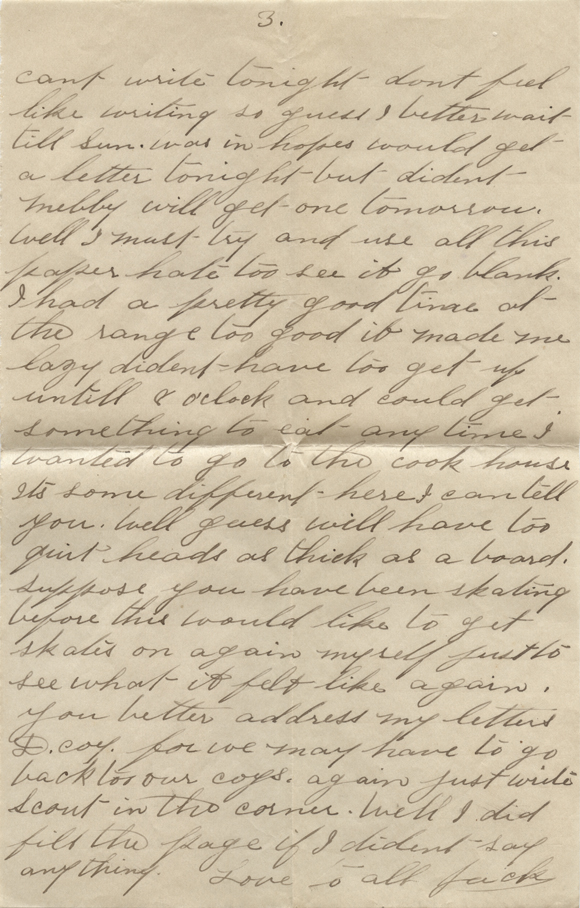 3.
cant write tonight dont feel
like writing so guess I better wait
till Sun. was in hopes would get
a letter tonight but dident
mebby will get one tomorrow.
Well I must try and use all this
paper hate too see it go blank.
I had a pretty good time at
the range too good it made me
lazy dident have too get up
untill 8 oclock and could get
something to eat any time I
wanted to go to the cook house
its some different here I can tell
you. Well guess will have too
quit heads as thick as a board.
suppose you have been skating
before this would like to get
skates on again myself just to
see what it felt like again.
you better address my letters
D. coy. for we may have to go
back too our coys. again just write
Scout in the corner. Well I did
fill the page if I dident say
anything. Love to all Jack